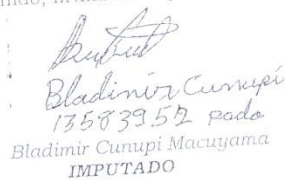 Bladimir Cunupi
13583952 pado
Bladimir Cunupi Macuyama
IMPUTADO